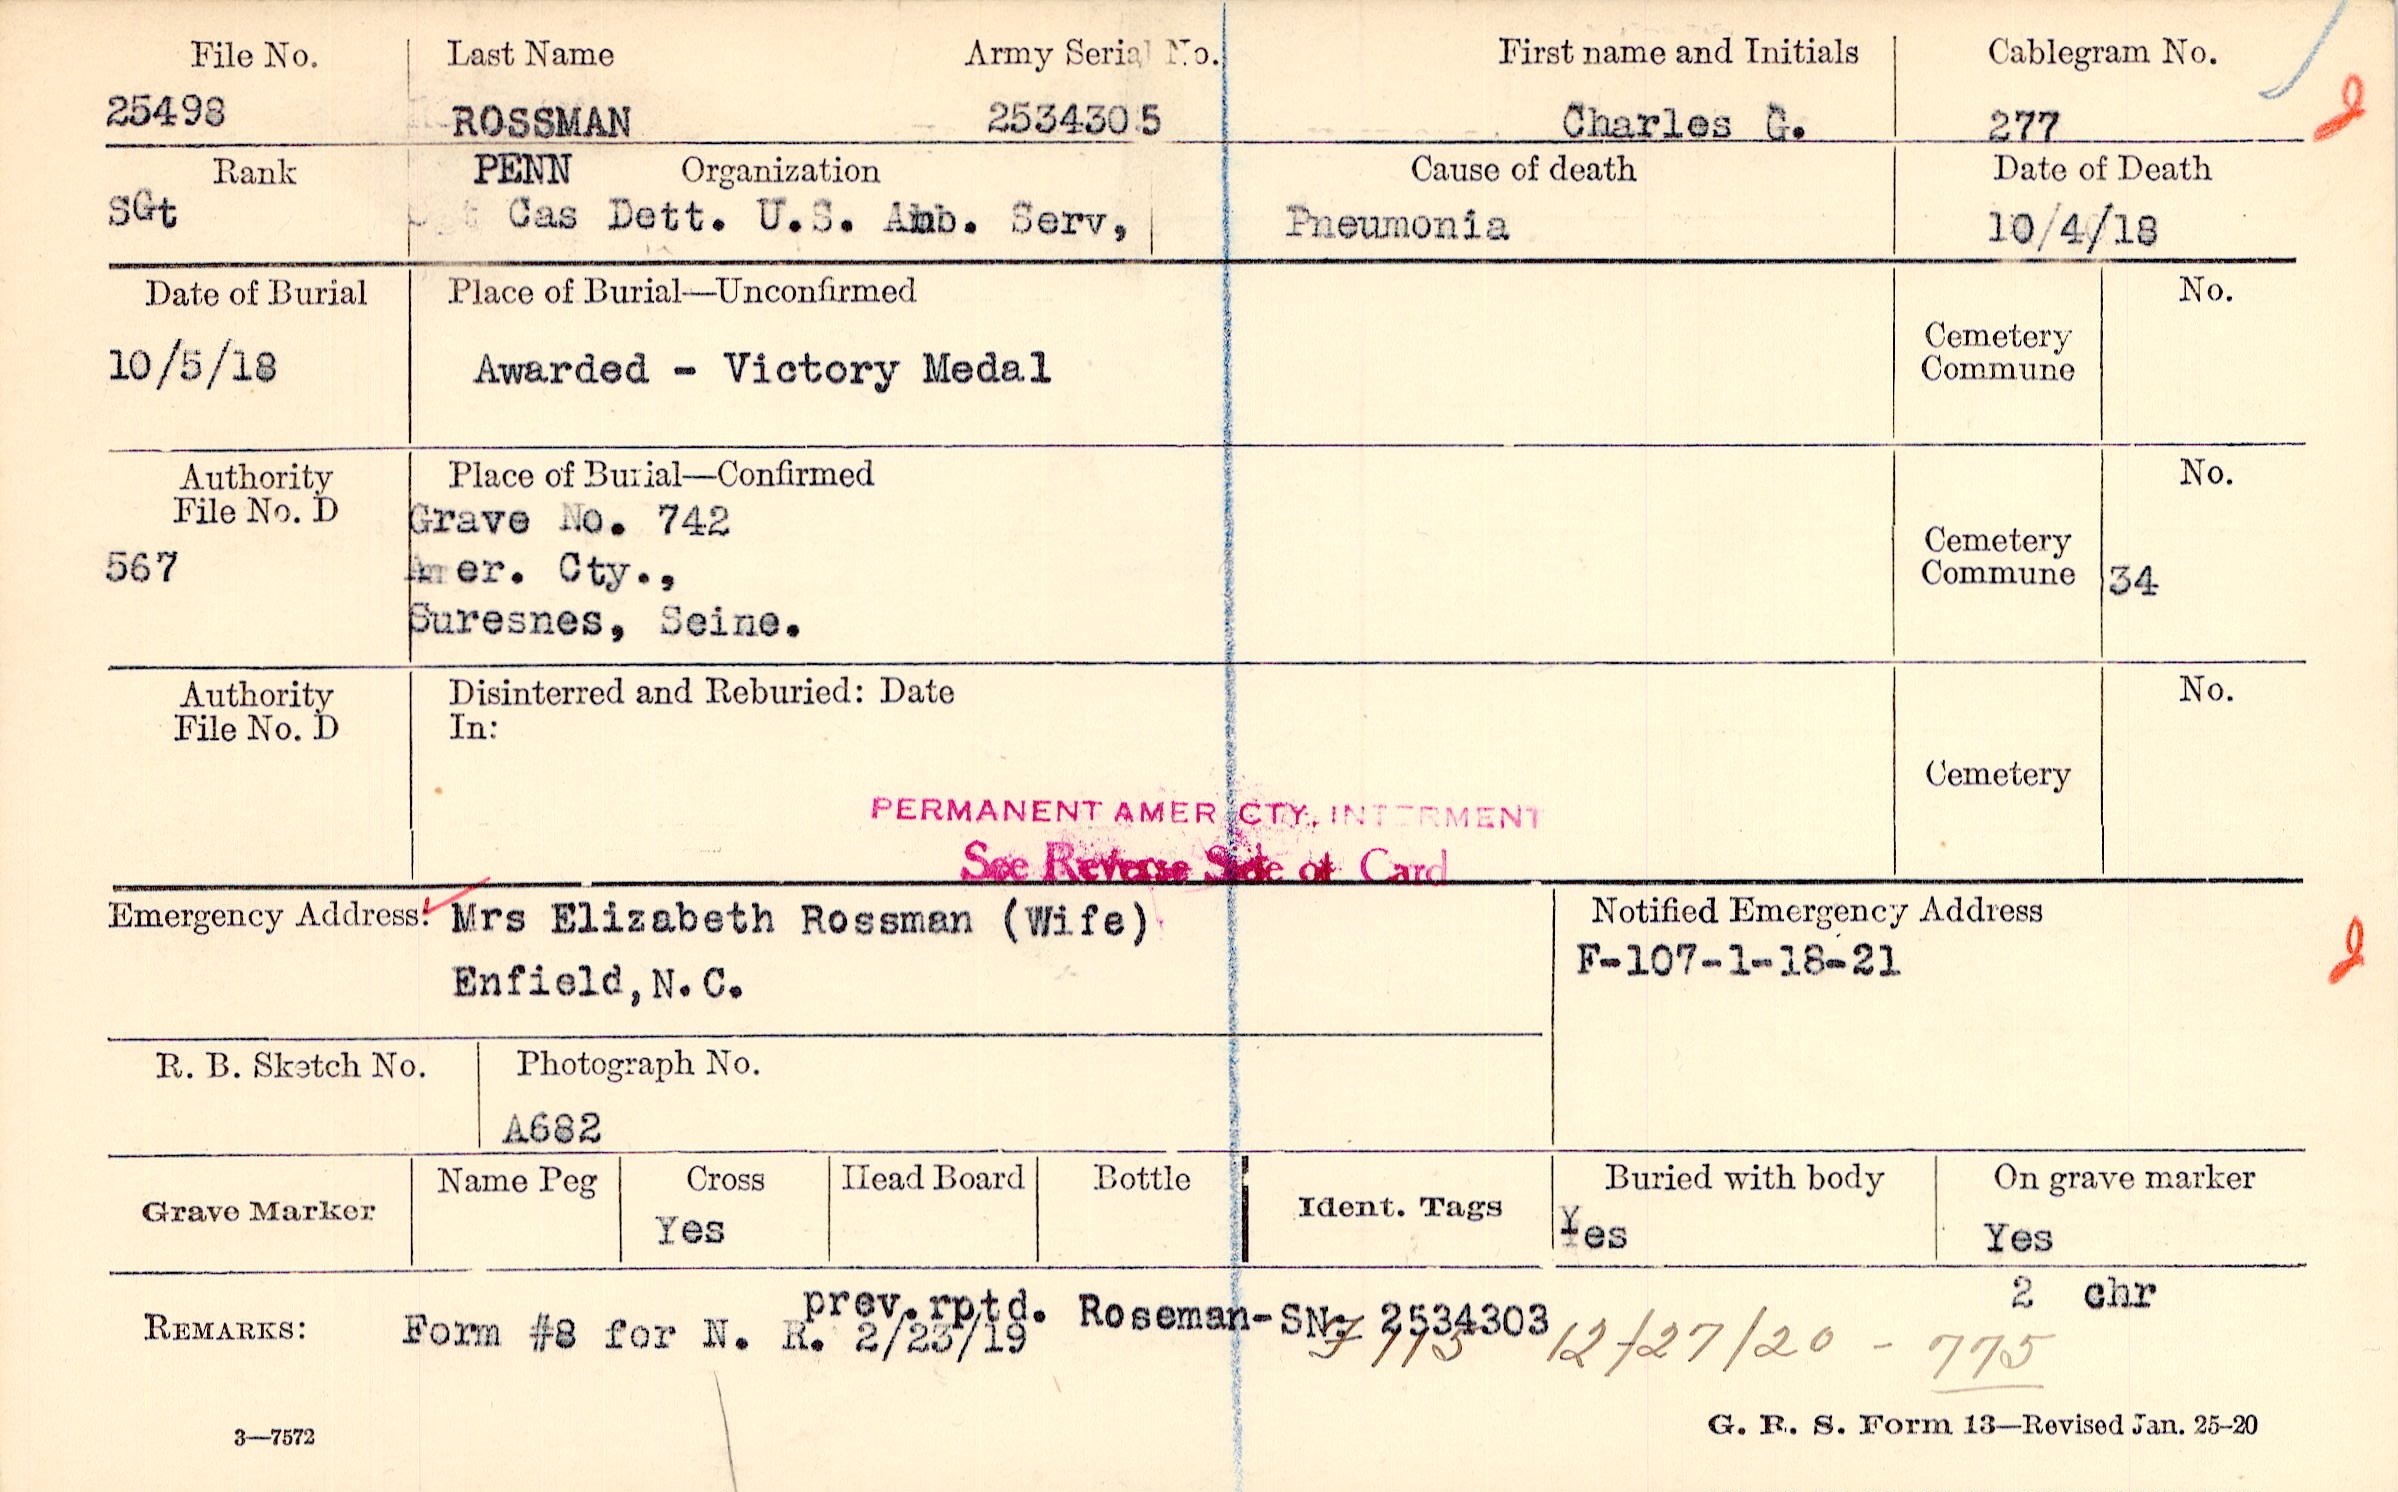 File No. Last Name Army Serial No. First name and Initials Cablegram No.
25498 ROSSMAN 2534305 Charles G. 277
Rank PENN Organization Cause of death Date of Death
SGt Cas Dett. U.S. Amb. Serv, Pneumonia 10/4/18
Date of Burial Place of Burial—Unconfirmed No.
Cemetery
Commune
10/5/18 Awarded - Victory Medal
Authority Place of Burial—Confirmed No.
File No. D
Grave No. 742
Cemetery
567 Amer. Cty., Commune 34
Suresnes, Seine.
Authority Disinterred and Reburied: Date No.
File No. D In:
Cemetery
PERMANENT AMER CTY. INTERMENT
See Reverse Side of Card
Emergency Address: Mrs Elizabeth Rossman (Wife) Notified Emergency Address
Enfield, N.C. F-107-1-18-21
R. B. Sketch No. Photograph No.
A682
Grave Marker Name Peg Cross Head Board Bottle Ident. Tags Buried with body On grave marker
Yes Yes Yes
2 chr
prev. rptd. Roseman-SN: 2534303
REMARKS: Form #8 for N. R. 2/23/19 12/27/20 - 775
3—7572 G. R. S. Form 13—Revised Jan. 25-20